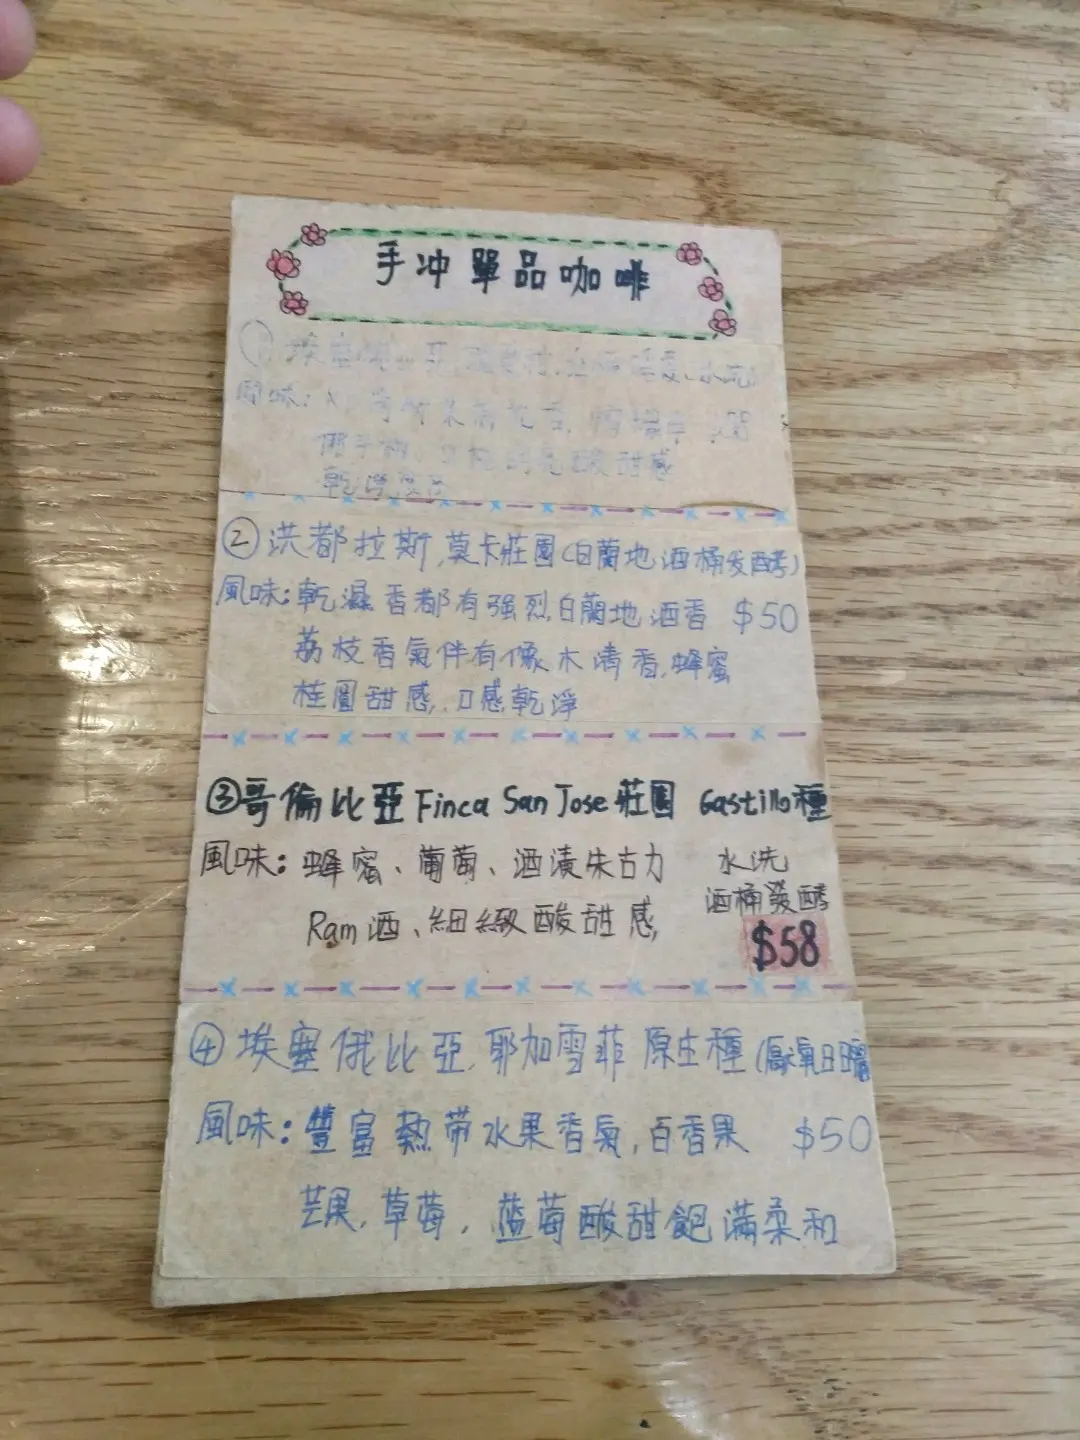 手冲單品咖啡
① 埃塞俄比亞
風味:
酸甜感
乾淨
② 洪都拉斯,莫卡莊園(白蘭地酒桶发酵)
風味:乾濕香都有强烈白蘭地酒香 $50
荔枝香氣伴有像木清香,蜂蜜
桂圓甜感,口感乾淨
③哥倫比亞Finca San Jose莊園 Castillo種
風味:蜂蜜、葡萄、酒漬朱古力 水洗
酒桶發酵
Ram酒、細緻酸甜感, $58
④ 埃塞俄比亞,耶加雪菲 原生種(厭氧日曬
風味:豐富熱带水果香氣,百香果 $50
芒果,草莓,蓝莓酸甜飽滿柔和